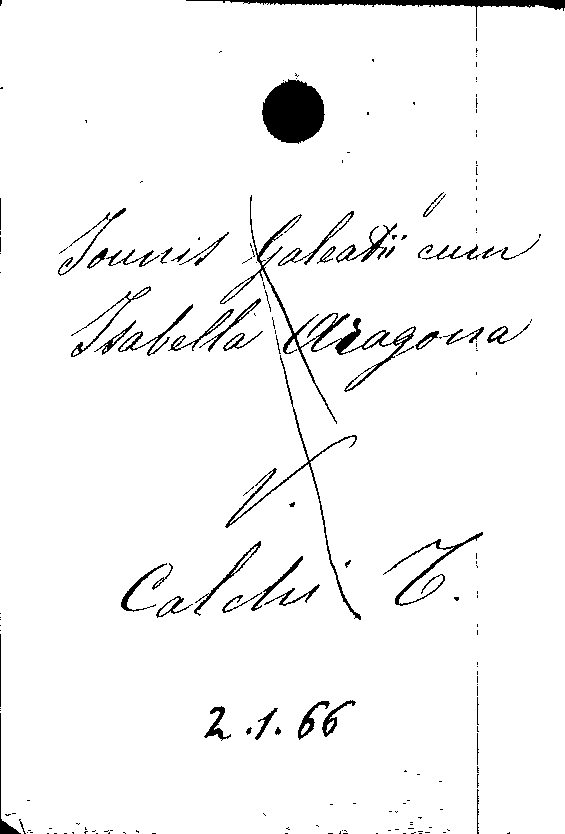 Iounis Galeatii cum
Isabella Aragona
V.
Calchi T.
2.1.66